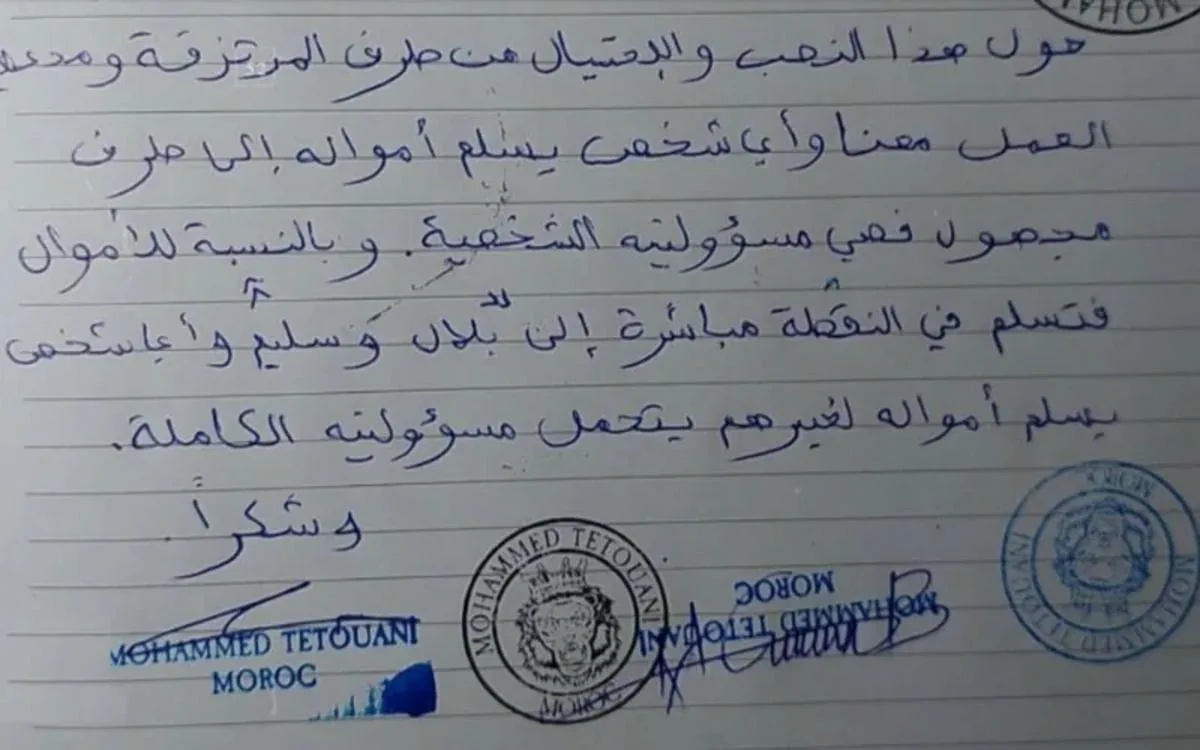 MOHAM
حول هذا النصب والاحتيال من طرف المرتزقة ومدعي
العمل معنا وأي شخص يسلم أمواله إلى طرف
مجهول فهي مسؤوليته الشخصية. وبالنسبة للأموال
فتسلم في النقطة مباشرة إلى بلال وسليم وأي شخص
يسلم أمواله لغيرهم يتحمل مسؤوليته الكاملة.
وشكراً
MOHAMMED TETOUANI
MOROC
MOHAMMED TETOUANI
MOROC
MOHAMMED TETOUANI
MOROC
MOHAMMED TETOUANI
MOROC